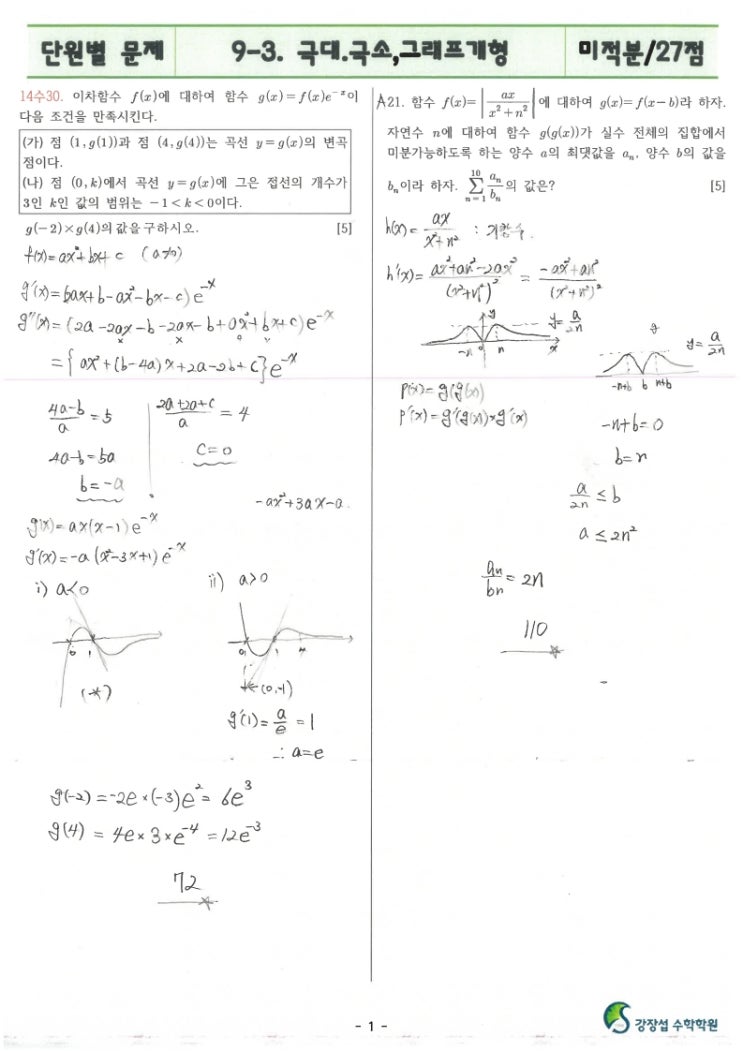 단원별 문제
9-3. 극대.극소,그래프개형
미적분/27점
14수30. 이차함수 f(x)에 대하여 함수 g(x)=f(x)e^{-x}이
다음 조건을 만족시킨다.
(가) 점 (1, g(1))과 점 (4, g(4))는 곡선 y=g(x)의 변곡
점이다.
(나) 점 (0, k)에서 곡선 y=g(x)에 그은 접선의 개수가
3인 k인 값의 범위는 -1<k<0이다.
g(-2)×g(4)의 값을 구하시오. [5]
f(x)=ax²+bx+c (a≠0)
g'(x)=(2ax+b-ax²-bx-c)e^{-x}
g''(x)={2a-2ax-b-2ax-b+ax²+bx+c}e^{-x}
={ax²+(b-4a)x+2a-2b+c}e^{-x}
(4a-b)/a=5
(2a+2a+c)/a=4
4a-b=5a
c=0
b=-a
-ax²+3ax-a
g(x)=ax(x-1)e^{-x}
g'(x)=-a(x²-3x+1)e^{-x}
i) a<0
ii) a>0
0 1
0 1 4
(-*)
(0,-1)
g'(1)=a/e=1
∴ a=e
g(-2)=-2e×(-3)e²=6e³
g(4)=4e×3×e^{-4}=12e^{-3}
72
A21. 함수 f(x)=|ax/(x²+n²)|에 대하여 g(x)=f(x-b)라 하자.
자연수 n에 대하여 함수 g(g(x))가 실수 전체의 집합에서
미분가능하도록 하는 양수 a의 최댓값을 a_n, 양수 b의 값을
b_n이라 하자. \sum_{n=1}^{10} a_n/b_n의 값은? [5]
h(x)=ax/(x²+n²) : 기함수.
h'(x)=(ax²+an²-2ax²)/(x²+n²)²=(-ax²+an²)/(x²+n²)²
y y=a/2n
-n 0 n x
y y=a/2n
-n+b b n+b
p(x)=g(g(x))
p'(x)=g'(g(x))×g'(x)
-n+b=0
b=n
a/2n≤b
a≤2n²
an/bn=2n
110
- 1 -
강장섭 수학학원